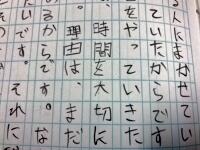 る人にまかせてい
ていたからです
をやっていきた
時間を大切に
理由は、まだ
るからです。な
いです。それに